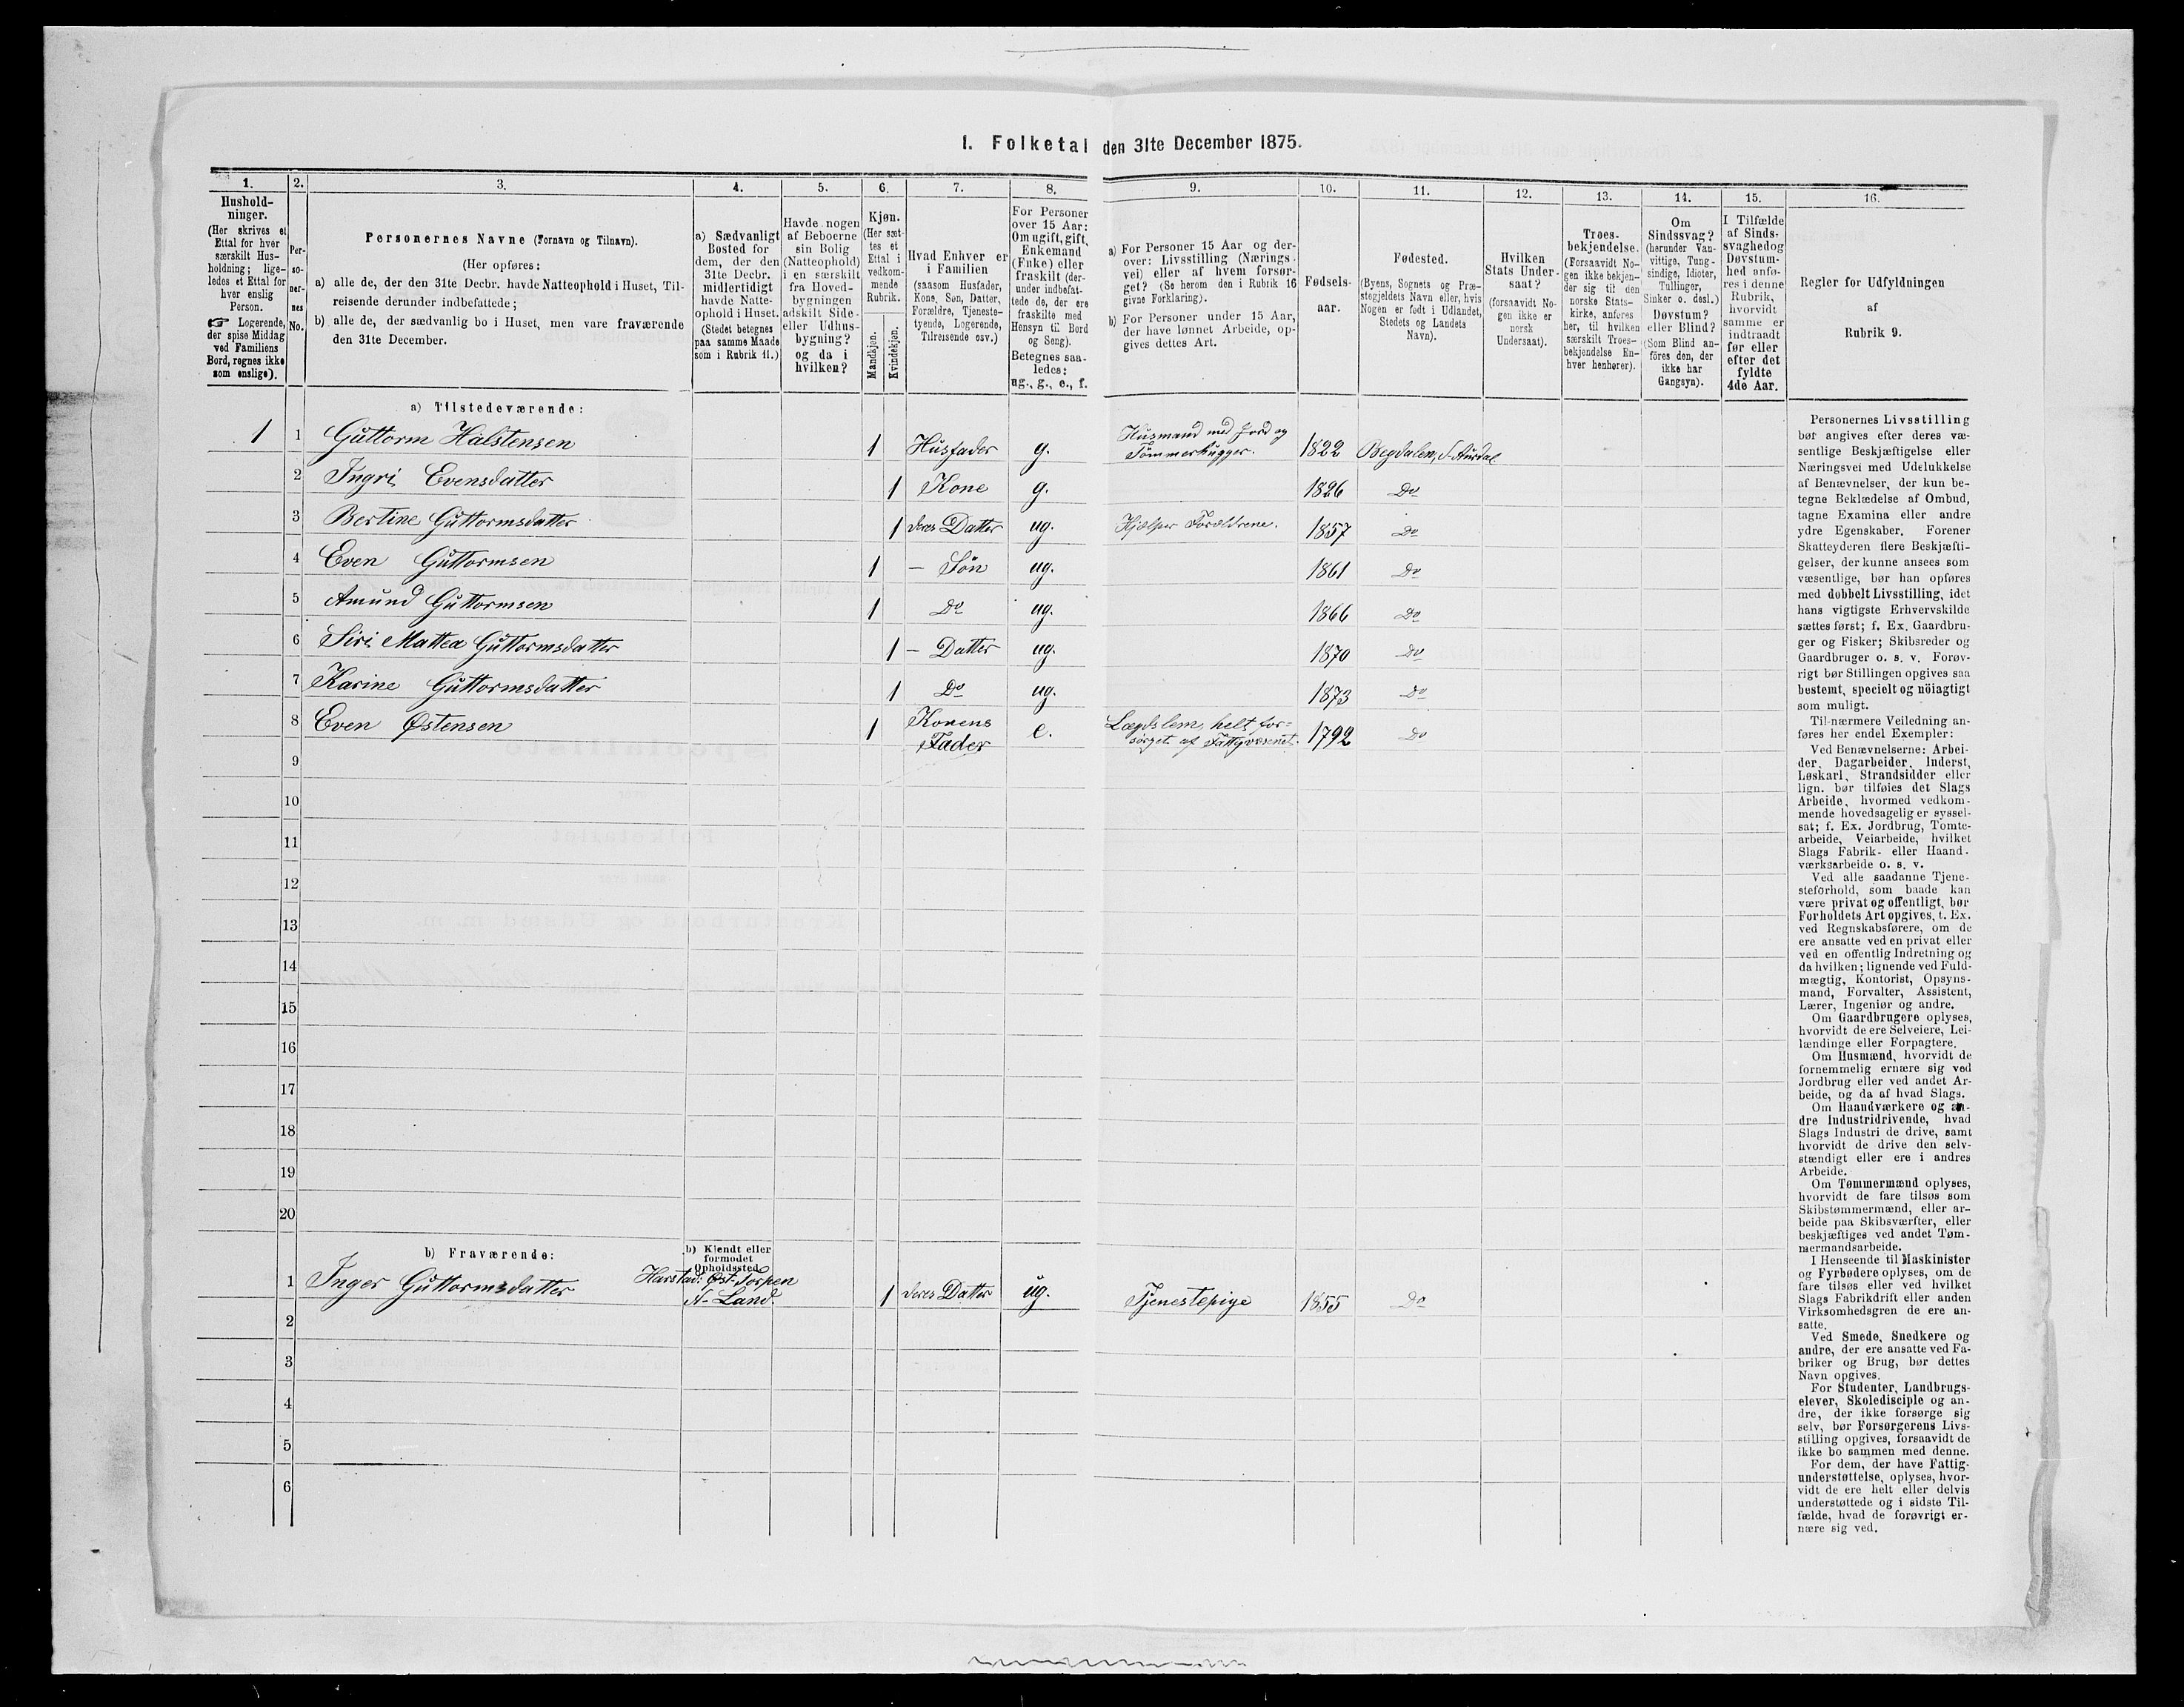 1. Folketal den 31te December 1875.
1.
Hushold-
ninger.
(Her skrives et
Ettal for hver
særskilt Hus-
holdning; lige-
ledes et Ettal for
hver enslig
Person.
☞ Logerende,
der spise Middag
ved Familiens
Bord, regnes ikke
som enslige).
2.
Per-
so-
ner-
nes
No.
3.
Personernes Navne (Fornavn og Tilnavn).
(Her opføres:
a) alle de, der den 31te Decbr. havde Natteophold i Huset, Til-
reisende derunder indbefattede;
b) alle de, der sædvanlig bo i Huset, men vare fraværende
den 31te December.
4.
a) Sædvanligt
Bosted for
dem, der den
31te Decbr.
midlertidigt
havde Natte-
ophold i Huset.
(Stedet betegnes
paa samme Maade
som i Rubrik 11.)
5.
Havde nogen
af Beboerne
sin Bolig
(Natteophold)
i en særskilt
fra Hoved-
bygningen
adskilt Side-
eller Udhus-
bygning?
og da i
hvilken?
6.
Kjøn.
(Her sæt-
tes et
Ettal i
vedkom-
mende
Rubrik.
Mandkjøn.
Kvindekjøn.
7.
Hvad Enhver er
i Familien
(saasom Husfader,
Kone, Søn, Datter,
Forældre, Tjeneste-
tyende, Logerende,
Tilreisende osv.)
8.
For Personer
over 15 Aar:
Om ugift, gift,
Enkemand
(Enke) eller
fraskilt (der-
under indbefat-
tede de, der ere
fraskilte med
Hensyn til Bord
og Seng).
Betegnes saa-
ledes:
ug., g., e., f.
9.
a) For Personer 15 Aar og der-
over: Livsstilling (Nærings-
vei) eller af hvem forsør-
get? (Se herom den i Rubrik 16
givne Forklaring).
b) For Personer under 15 Aar,
der have lønnet Arbeide, op-
gives dettes Art.
10.
Fødsels-
aar.
11.
Fødested.
(Byens, Sognets og Præ-
stegjeldets Navn eller, hvis
Nogen er født i Udlandet,
Stedets og Landets
Navn).
12.
Hvilken
Stats Under-
saat?
(forsaavidt No-
gen ikke er
norsk
Undersaat).
13.
Troes-
bekjendelse.
(Forsaavidt No-
gen ikke bekjen-
der sig til den
norske Stats-
kirke, anføres
her, til hvilken
særskilt Troes-
bekjendelse En-
hver henhører).
14.
Om
Sindssvag?
(herunder Van-
vittige, Tung-
sindige, Idioter,
Tullinger,
Sinker o. desl.)
Døvstum?
eller Blind?
(Som Blind an-
føres den, der
ikke har
Gangsyn).
15.
I Tilfælde
af Sinds-
svaghed og
Døvstum-
hed anfø-
res i denne
Rubrik,
hvorvidt
samme er
indtraadt
før eller
efter det
fyldte
4de Aar.
16.
Regler for Udfyldningen
af
Rubrik 9.
a) Tilstedeværende:
1 1 Guttorm Halstensen 1 Husfader g. Husmand med Jord og Tømmerhugger. 1822 Begdalen, S. Aurdal
2 Ingri Evensdatter 1 Kone g. 1826 Do
3 Bertine Guttormsdatter 1 deres Datter ug. Hjelper Forældrene. 1857 Do
4 Even Guttormsen 1 – Søn ug. 1861 Do
5 Amund Guttormsen 1 Do ug. 1866 Do
6 Siri Mattea Guttormsdatter 1 – Datter ug. 1870 Do
7 Karine Guttormsdatter 1 Do ug. 1873 Do
8 Even Østensen 1 Konens Fader e. Lægdslem, helt for-
sørget af Fattigvæsenet. 1792 Do
9
10
11
12
13
14
15
16
17
18
19
20
b) Fraværende:
b) Kjendt eller
formodet
Opholdssted.
1 Inger Guttormsdatter Harstad: Øst-Torpen
N- Land. 1 deres Datter ug. Tjenestepige 1855 Do
2
3
4
5
6
Personernes Livsstilling
bør angives efter deres væ-
sentlige Beskjæftigelse eller
Næringsvei med Udelukkelse
af Benævnelser, der kun be-
tegne Beklædelse af Ombud,
tagne Examina eller andre
ydre Egenskaber. Forener
Skatteyderen flere Beskjæfti-
gelser, der kunne ansees som
væsentlige, bør han opføres
med dobbelt Livsstilling, idet
hans vigtigste Erhvervskilde
sættes først; f. Ex. Gaardbru-
ger og Fisker; Skibsreder og
Gaardbruger o. s. v. Forøv-
rigt bør Stillingen opgives saa
bestemt, specielt og nöiagtigt
som muligt.
Til nærmere Veiledning an-
føres her endel Exempler:
Ved Benævnelserne: Arbei-
der, Dagarbeider, Inderst,
Løskarl, Strandsidder eller
lign. bør tilføies det Slags
Arbeide, hvormed vedkom-
mende hovedsagelig er syssel-
sat; f. Ex. Jordbrug, Tomte-
arbeide, Veiarbeide, hvilket
Slags Fabrik- eller Haand-
værksarbeide o. s. v.
Ved alle saadanne Tjene-
steforhold, som baade kan
være privat og offentligt, bør
Forholdets Art opgives, t. Ex.
ved Regnskabsførere, om de
ere ansatte ved en privat eller
ved en offentlig Indretning og
da hvilken; lignende ved Fuld-
mægtig, Kontorist, Opsyns-
mand, Forvalter, Assistent,
Lærer, Ingeniør og andre.
Om Gaardbrugere oplyses,
hvorvidt de ere Selveiere, Lei-
lændinge eller Forpagtere.
Om Husmænd, hvorvidt de
fornemmelig ernære sig ved
Jordbrug eller ved andet Ar-
beide, og da af hvad Slags.
Om Haandværkere og an-
dre Industridrivende, hvad
Slags Industri de drive, samt
hvorvidt de drive den selv-
stændigt eller ere i andres
Arbeide.
Om Tømmermænd oplyses,
hvorvidt de fare tilsøs som
Skibstømmermænd, eller ar-
beide paa Skibsværfter, eller
beskjæftiges ved andet Tøm-
mermandsarbeide.
I Henseende til Maskinister
og Fyrbødere oplyses, om de
fare tilsøs eller ved hvilket
Slags Fabrikdrift eller anden
Virksomhedsgren de ere an-
satte.
Ved Smede, Snedkere og
andre, der ere ansatte ved Fa-
briker og Brug, bør dettes
Navn opgives.
For Studenter, Landbrugs-
elever, Skoledisciple og an-
dre, der ikke forsørge sig
selv, bør Forsørgerens Livs-
stilling opgives, forsaavidt de
ikke bo sammen med denne.
For dem, der have Fattig-
understøttelse, oplyses, hvor-
vidt de ere helt eller delvis
understøttede og i sidste Til-
fælde, hvad de forøvrigt er-
nære sig ved.